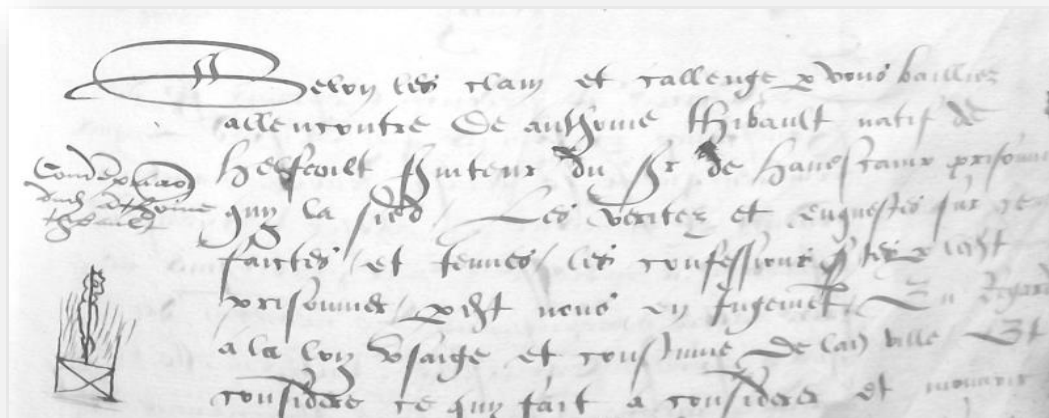 Selon les clain et callenge p vous baillier
allencontre de anthoine thibault natif de
Helfault serviteur du Sr de Haveskercke prisonnier
Les veritez et enquestes sur ce
faictes et tenues les confessions
prisonnier nous en jugement En regard
a la loy usaige et coustume de lad ville Et
considere ce quy fait a considerer et mouvoir
Condempnacion
dud anthoine
thibault